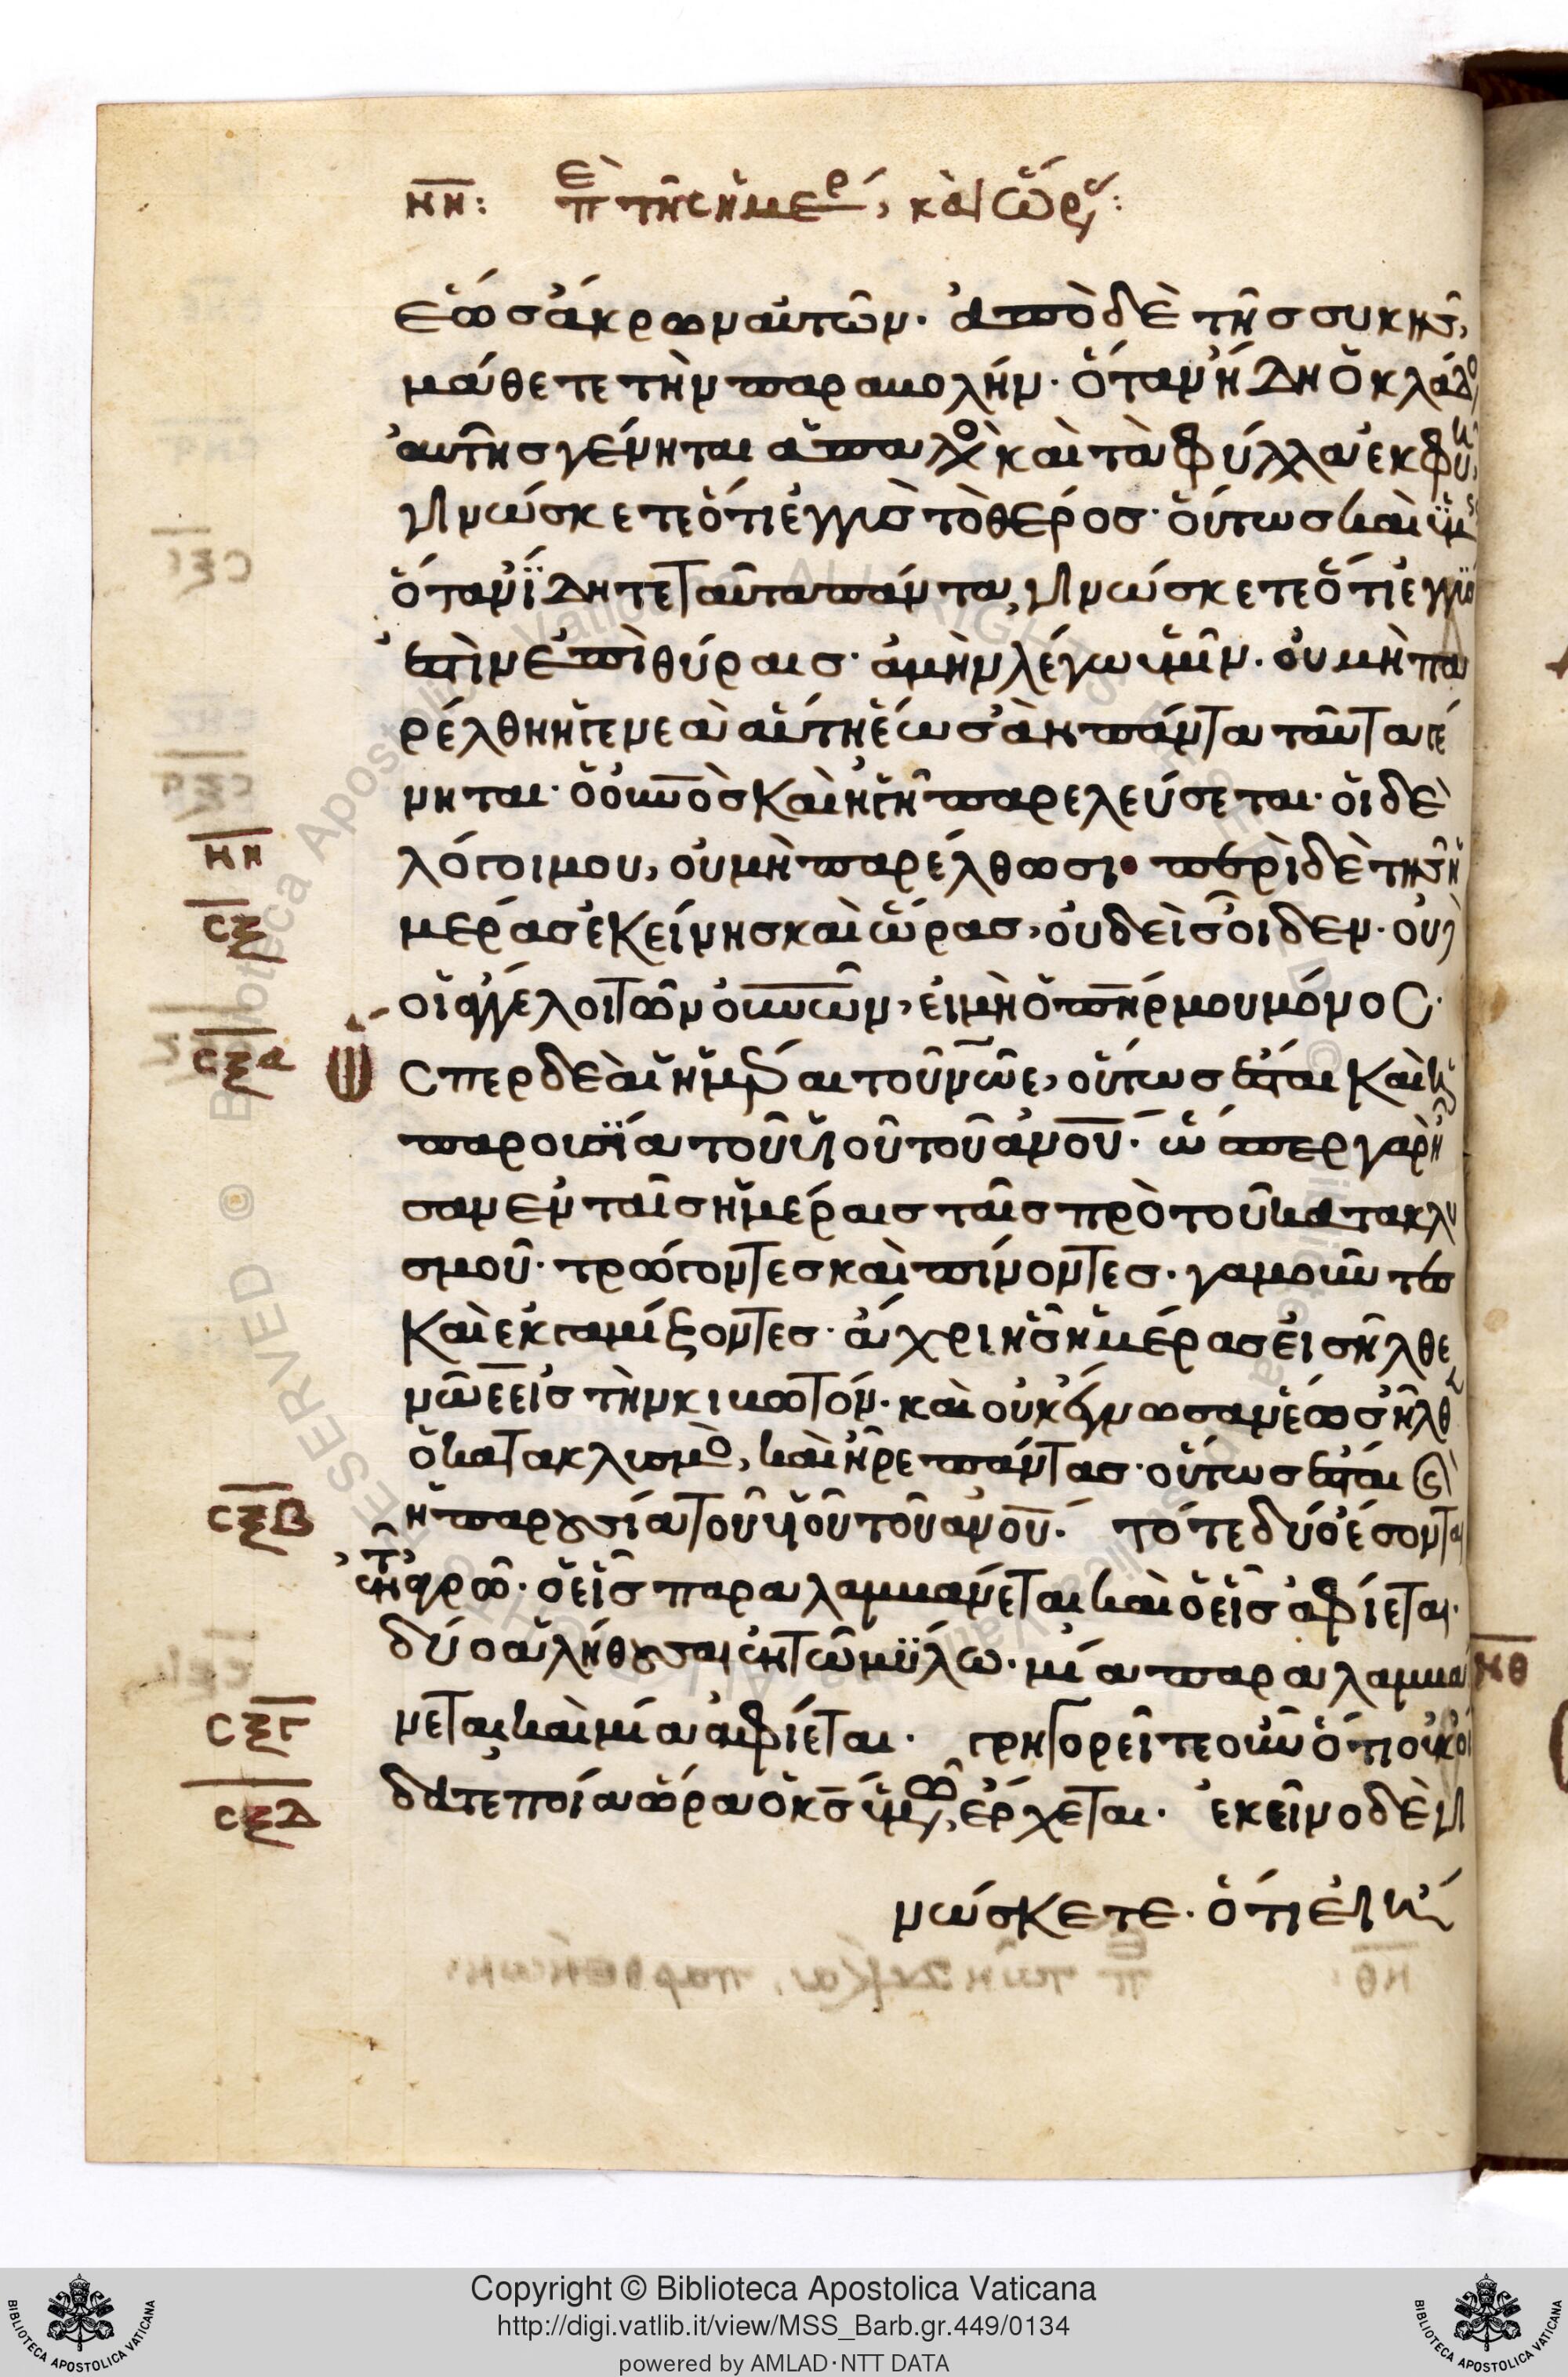 νη: πε τῆς ἡμερ, καὶ ὥρς:
ἕωσ ἄκρων αὐτῶν. ἀπὸ δὲ τῆσ συκῆσ,
μάθετε τὴν παραβολήν. ὅταν ἤδη ὁ κλάδο
αὐτῆσ γένηται ἁπαλὸ καὶ τὰ φύλλα ἐκφύη,
γινώσκετε ὅτι ἐγγὺσ τὸ θέροσ. οὕτωσ καὶ ὑμ
ὅταν ἴδητε ταῦτα πάντα, γινώσκετε ὅτι ἐγγύσ
ἐστὶν ἐπὶ θύραισ. ἀμὴν λέγω ὑμῖν. οὐ μὴ πα
ρέλθη ἡ γενεὰ αὕτη ἕωσ ἂν πάντα ταῦτα γέ
νηται. ὁ οὐνὸσ καὶ ἡ γῆ παρελεύσεται. οἱ δὲ
λόγοι μου, οὐ μὴ παρέλθωσι. περὶ δὲ τῆσ ἡ
νη
μέρασ ἐκείνησ καὶ ὥρασ, οὐδεὶσ οἶδεν. οὐ
σξ
οἱ ἄγγελοι τῶν οὐνῶν, εἰ μὴ ὁ πηρ μου μόνοσ.
σξα
Ὥσπερ δὲ αἱ ἡμέραι τοῦ νῶε, οὕτωσ ἔσται καὶ ἡ
παρουσία τοῦ υἱοῦ τοῦ ἀνου. ὥσπερ γὰρ ἦ
σαν ἐν ταῖσ ἡμέραισ ταῖσ πρὸ τοῦ κατακλυ
σμοῦ. τρώγοντεσ καὶ πίνοντεσ. γαμοῦντεσ
καὶ ἐκγαμίζοντεσ. ἄχρι ἧσ ἡμέρασ εἰσῆλθε
νῶε εἰσ τὴν κιβωτόν. καὶ οὐκ ἔγνωσαν ἕωσ ἦλθ
ὁ κατακλυσμὸ, καὶ ἦρε πάντασ. οὕτωσ ἔσται καὶ
ἡ παρουσία τοῦ υἱοῦ τοῦ ἀνου. τότε δύο ἔσονται
σξβ
ἐν τῶ ἀγρῶ. ὁ εἷσ παραλαμβάνεται καὶ ὁ εἷσ ἀφίεται.
δύο ἀλήθουσαι ἐν τῶ μύλω. μία παραλαμβά
νθ
νεται καὶ μία ἀφίεται. γρηγορεῖτε οὖν ὅτι οὐκ οἴ
σξγ
δατε ποία ὥρα ὁ κσ ὑμῶν, ἔρχεται. ἐκεῖνο δὲ γι
σξδ
νώσκετε. ὅτι εἰ
Copyright © Biblioteca Apostolica Vaticana
http://digi.vatlib.it/view/MSS_Barb.gr.449/0134
powered by AMLAD·NTT DATA